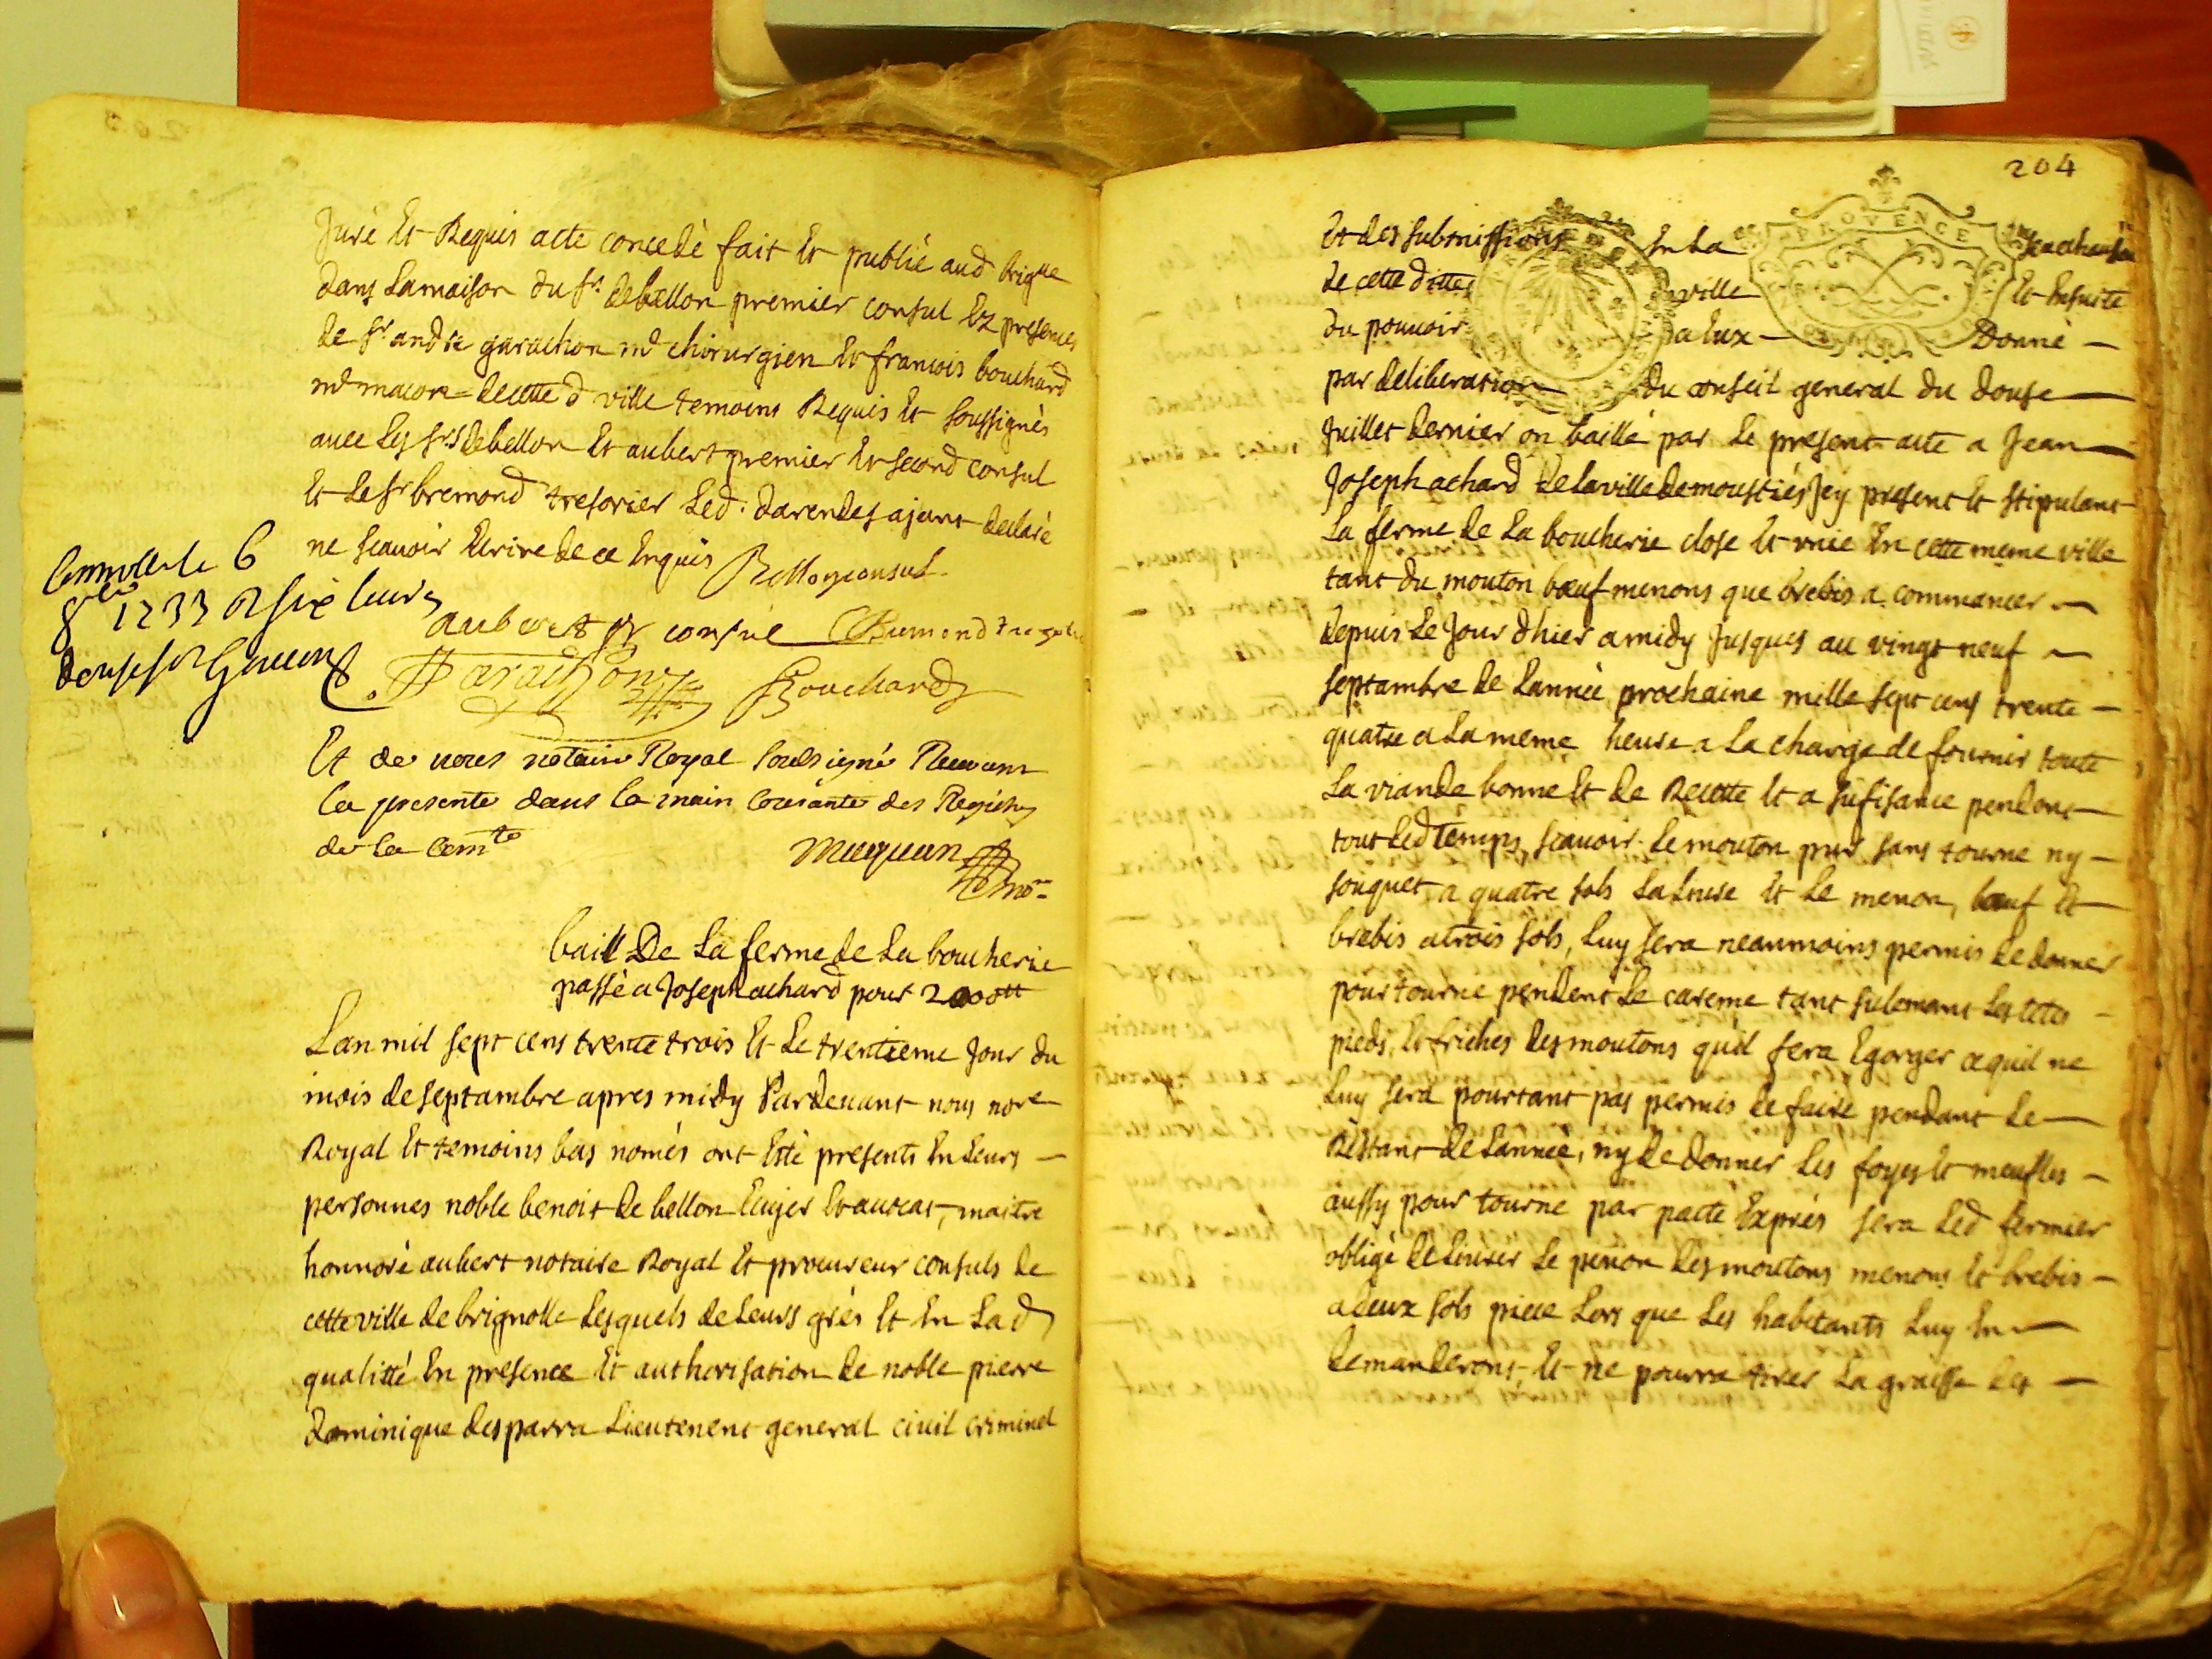 Juré Et Requis acte concedé fait Et publié aud brigne
dans Lamaison du Sr. debellon premier consul Ez presences
de Sr. andré garachon md chirurgien Et francois bouchard
md macon decette d ville temoins Requis Et soussignés
avec Les Srs debellon Et aubert premier Et second consul
Et Le Sr bremond tresorier Led. darendes ajant declaré
ne scavoir Ecrire de ce Enquis Bellon consul
aubert consul Bremond
Garachon Bouchard
Et de nous notaire Royal soubsigné Recevant
la presente dans la main courante des Registres
de la Comte
no.
Controllé le 6
8bre 1733
douze sols
baill De La ferme de La boucherie
passé a Joseph achard pour 2000tt
Lan mil sept cens trente trois Et Le trentieme Jour du
mois de septambre apres midy Pardevant nous nore
Royal Et temoins bas només ont Esté presents En Leurs
personnes noble benoit de bellon Ecuyer Et avocat, maitre
honnoré aubert notaire Royal Et procureur consuls de
cette ville de brignolle Lesquels de Leurs grés Et En Lad
qualitté En presence Et authorisation de noble pierre
dominique desparra Lieutenent general civil criminel
204
PROVENCE
Et des submissions En La Senechaussée
de cette ditte ville Et Ensuite
du pouvoir a Eux Donné
par deliberation du conseil general du douse
Juillet dernier on baillé par Le present acte a Jean
Joseph achard de la ville de moustiés Jcy present Et stipulant
La ferme de La boucherie close Et vnie En cette meme ville
tant du mouton bœuf menons que brebis a commancer
depuis Le Jour dhier a midy Jusques au vingt neuf
septambre de Lannée prochaine mille sept cens trente
quatre a La meme heure a La charge de fournir toute
La viande bonne Et de Recette Et a sufisance pendent
tout Led temps, scavoir Le mouton pur sans tourne ny
souquet, a quatre sols La Livre Et Le menon, bœuf Et
brebis a trois sols, Luy sera neanmoins permis de donner
pour tourne pendent Le careme tant sulement Les tetes
pieds, Et friches des moutons quil fera Egorger ce quil ne
Luy sera pourtant pas permis de faire pendant Le
Restant de Lannée, ny de donner Les foyes Et meusles
aussy pour tourne par pacte Exprés sera Led fermier
obligé de Livrer Le penon des moutons menons Et brebis
a deux sols piece Lors que Les habitants Luy En
demanderont, Et ne pourra tirer La graisse des